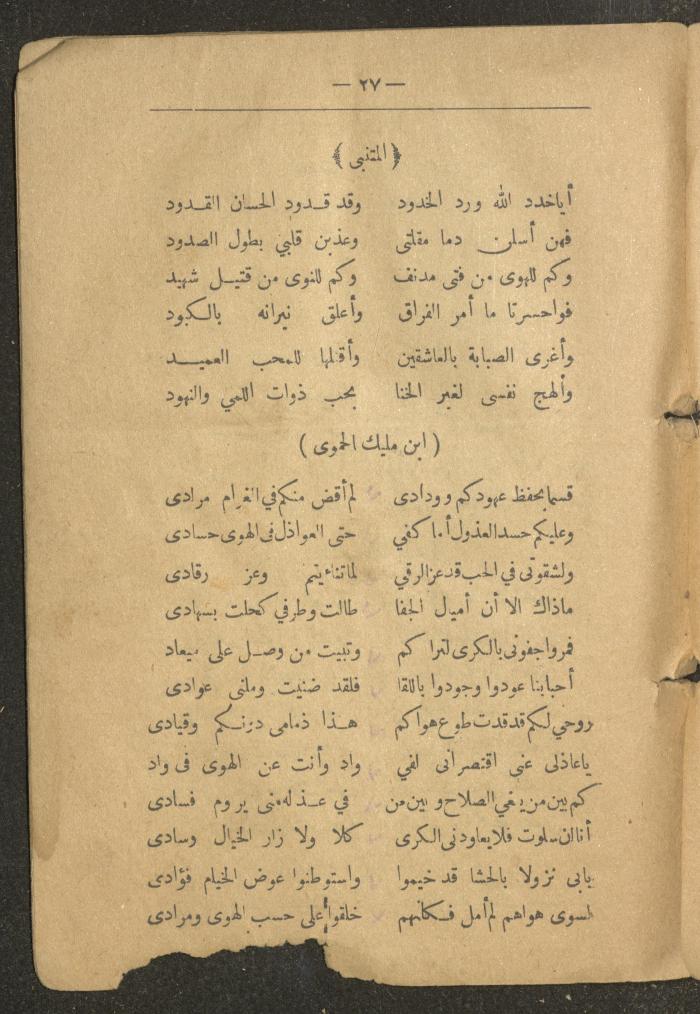 — ٢٧ —
﴿ المتنبى ﴾
أيا خدد الله ورد الخدود وقد قدود الحسان القدود
فهن أسلن دما مقلتى وعذبن قلبي بطول الصدود
وكم للهوى من فتى مدنف وكم للنوى من قتيل شهيد
فواحسرتا ما أمر الفراق وأعلق نيرانه بالكبود
وأغرى الصبابة بالعاشقين وأقتلها للمحب العميد
وألهج نفسى لغير الخنا بحب ذوات اللمي والنهود
( ابن مليك الحموى )
قسما بحفظ عهودكم وودادى لم أقض منكم في الغرام مرادى
وعليكم حسد العذول أما كفي حتى العواذل فى الهوى حسادى
ولشقوتى في الحب قد عز الرقي لما تناءيتم وعز رقادى
ماذاك الا أن أميال الجفا طالت وطرفي كحلت بسهادى
فمروا جفونى بالكرى لتراكم وتبيت من وصل على ميعاد
أحبابنا عودوا وجودوا باللقا فلقد ضنيت وملنى عوادى
روحي لكم قد قدت طوع هواكم هذا ذمامى دونكم وقيادى
ياعاذلى عنى اقتصر انى لفي واد وأنت عن الهوى فى واد
كم بين من يبغي الصلاح وبين من في عذله منى يروم فسادى
أنا ان سلوت فلا يعاودنى الكرى كلا ولا زار الخيال وسادى
بابى نزولا بالحشا قد خيموا واستوطنوا عوض الخيام فؤادى
لسوى هواهم لم أمل فكأنهم خلقوا على حسب الهوى ومرادى